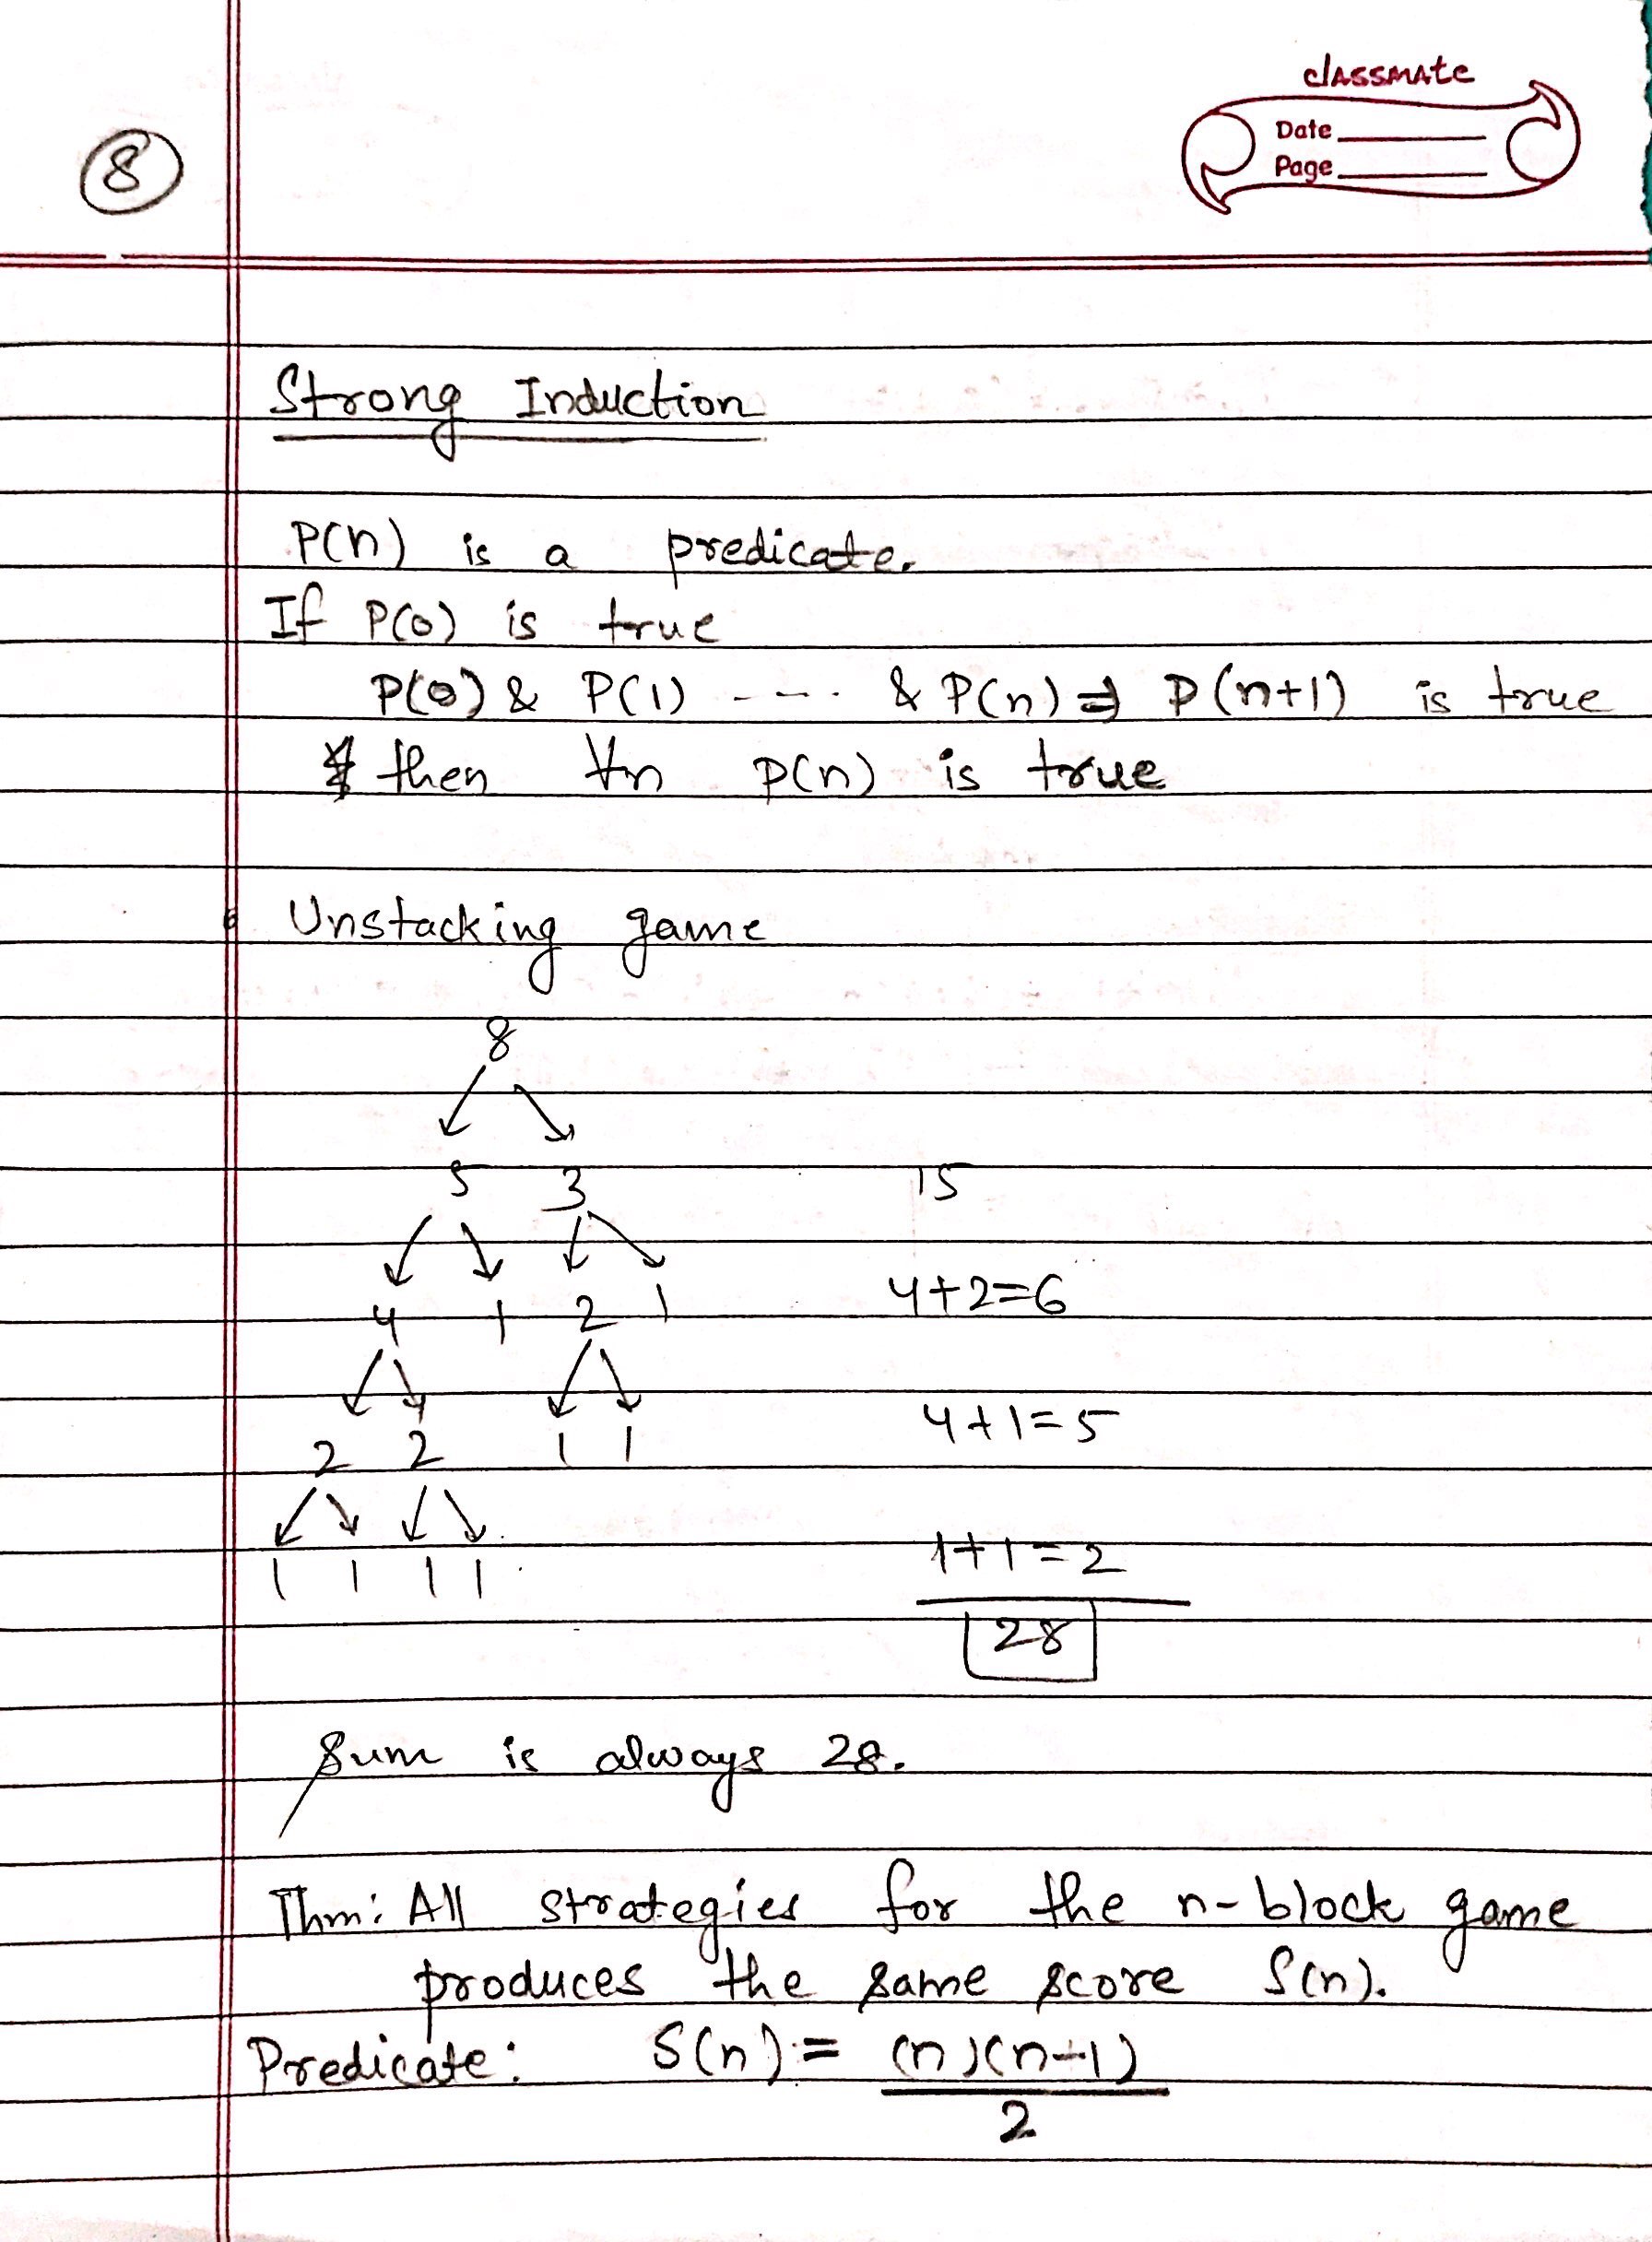 classmate
Date
Page
8
Strong Induction
P(n) is a predicate.
If P(0) is true
P(0) & P(1) ---. & P(n) ⇒ P(n+1) is true
then ∀n P(n) is true
Unstacking game
8
5 3 15
4 1 2 1 4+2=6
2 2 1 1 4+1=5
1 1 1 1 1+1=2
28
Sum is always 28.
Thm: All strategies for the n-block game
produces the same score S(n).
Predicate: S(n) = (n)(n-1)
2